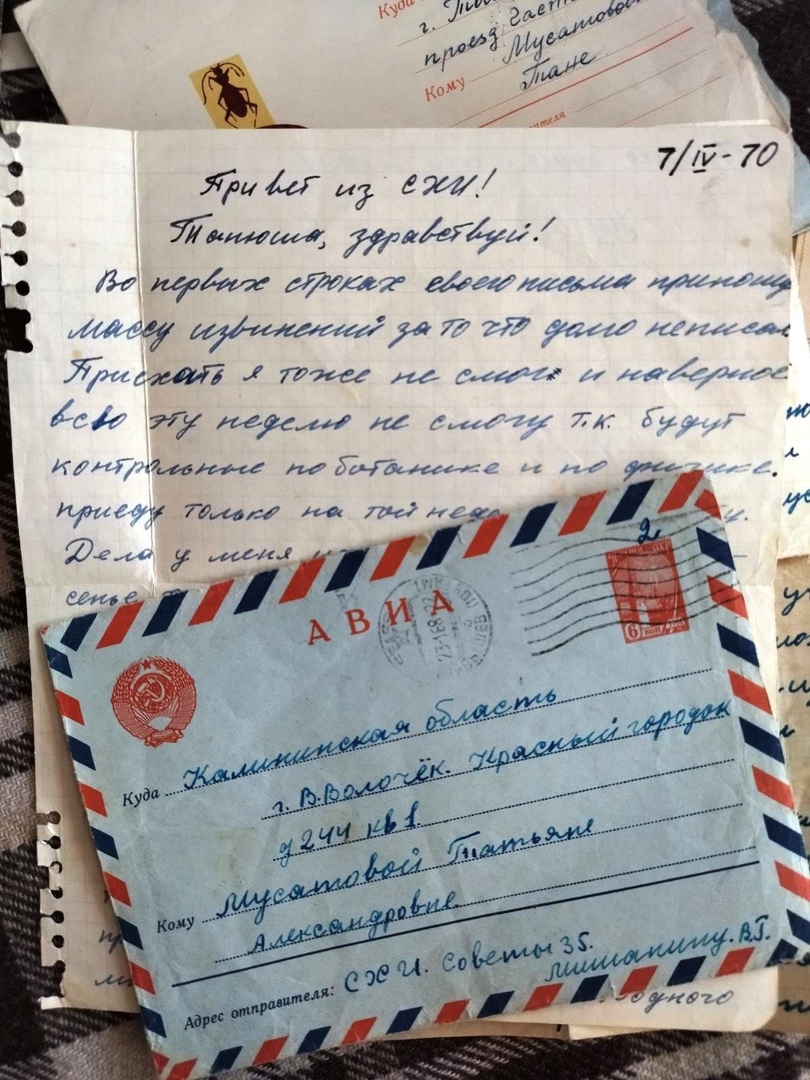 Куда
г.
проезд Гаст
Кому Мусатовой
Тане
7/IV-70
Привет из СХИ!
Танюша, здравствуй!
Во первых строках своего письма приношу
массу извинений за то что долго неписал
Приехать я тоже не смог и наверное
всю эту неделю не смогу т.к. будут
контрольные по ботанике и по физике.
приеду только на той
Дела у меня
2
АВИА
6 коп
Куда Калининская область
г. В.Волочёк. Красный городок
д 244 кв 1.
Кому Мусатовой Татьяне
Александровне.
Адрес отправителя: СХИ. Советы 35.
Мишанину. В.Г.
одного